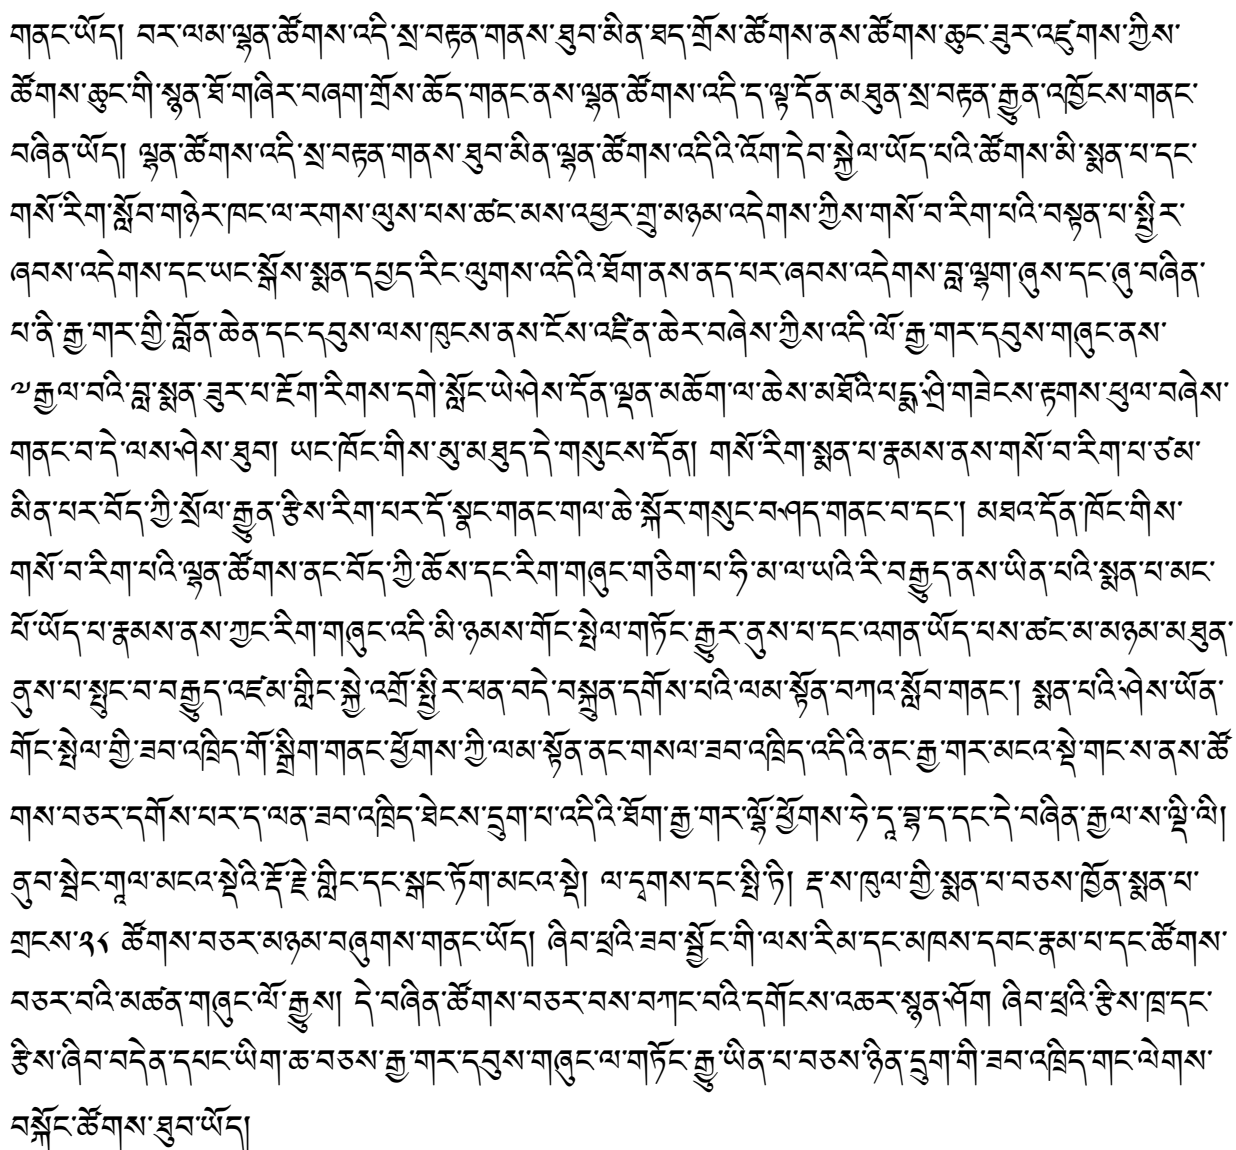 གནང་ཡོད། བར་ལམ་ལྷན་ཚོགས་འདི་སྲ་བརྟན་གནས་ཐུབ་མིན་ཐད་གྲོས་ཚོགས་ནས་ཚོགས་ཆུང་ཟུར་འཛུགས་ཀྱིས་
ཚོགས་ཆུང་གི་སྙན་ཐོ་གཞིར་བཞག་གྲོས་ཆོད་གནང་ནས་ལྷན་ཚོགས་འདི་ད་ལྟ་དོན་མཐུན་སྲ་བརྟན་རྒྱུན་འཁྱོངས་གནང་
བཞིན་ཡོད། ལྷན་ཚོགས་འདི་སྲ་བརྟན་གནས་ཐུབ་མིན་ལྷན་ཚོགས་འདིའི་འོག་དེབ་སྐྱེལ་ཡོད་པའི་ཚོགས་མི་སྨན་པ་དང་
གསོ་རིག་སློབ་གཉེར་ཁང་ལ་རགས་ལུས་པས་ཚང་མས་འཕྱར་གྲུ་མཉམ་འདེགས་ཀྱིས་གསོ་བ་རིག་པའི་བསྟན་པ་སྤྱིར་
ཞབས་འདེགས་དང་ཡང་སྒོས་སྨན་དཔྱད་རིང་ལུགས་འདིའི་ཐོག་ནས་ནད་པར་ཞབས་འདེགས་བླ་ལྷག་ཞུས་དང་ཞུ་བཞིན་
པ་ནི་རྒྱ་གར་གྱི་བློན་ཆེན་དང་དབུས་ལས་ཁུངས་ནས་ངོས་འཛིན་ཆེར་བཞེས་ཀྱིས་འདི་ལོ་རྒྱ་གར་དབུས་གཞུང་ནས་
༧རྒྱལ་བའི་བླ་སྨན་ཟུར་པ་རྫོག་རིགས་དགེ་སློང་ཡེ་ཤེས་དོན་ལྡན་མཆོག་ལ་ཆེས་མཐོའི་པདྨ་ཤྲི་གཟེངས་རྟགས་ཕུལ་བཞེས་
གནང་བ་དེ་ལས་ཤེས་ཐུབ། ཡང་ཁོང་གིས་མུ་མཐུད་དེ་གསུངས་དོན། གསོ་རིག་སྨན་པ་རྣམས་ནས་གསོ་བ་རིག་པ་ཙམ་
མིན་པར་བོད་ཀྱི་སྲོལ་རྒྱུན་རྩིས་རིག་པར་དོ་སྣང་གནང་གལ་ཆེ་སྐོར་གསུང་བཤད་གནང་བ་དང་། མཐའ་དོན་ཁོང་གིས་
གསོ་བ་རིག་པའི་ལྷན་ཚོགས་ནང་བོད་ཀྱི་ཆོས་དང་རིག་གཞུང་གཅིག་པ་ཧི་མ་ལ་ཡའི་རི་བརྒྱུད་ནས་ཡིན་པའི་སྨན་པ་མང་
པོ་ཡོད་པ་རྣམས་ནས་ཀྱང་རིག་གཞུང་འདི་མི་ཉམས་གོང་སྤེལ་གཏོང་རྒྱུར་ནུས་པ་དང་འགན་ཡོད་པས་ཚང་མ་མཉམ་མཐུན་
ནུས་པ་སྤུང་བ་བརྒྱུད་འཛམ་གླིང་སྐྱེ་འགྲོ་སྤྱིར་ཕན་བདེ་བསྐྲུན་དགོས་པའི་ལམ་སྟོན་བཀའ་སློབ་གནང་། སྨན་པའི་ཤེས་ཡོན་
གོང་སྤེལ་གྱི་ཟབ་འཁྲིད་གོ་སྒྲིག་གནང་ཕྱོགས་ཀྱི་ལམ་སྟོན་ནང་གསལ་ཟབ་འཁྲིད་འདིའི་ནང་རྒྱ་གར་མངའ་སྡེ་གང་ས་ནས་ཚོ
གས་བཅར་དགོས་པར་ད་ལན་ཟབ་འཁྲིད་ཐེངས་དྲུག་པ་འདིའི་ཐོག་རྒྱ་གར་ལྷོ་ཕྱོགས་ཧེ་དཱ་བྷ་ད་དང་དེ་བཞིན་རྒྱལ་ས་ལྡི་ལི།
ནུབ་སྦེང་གཱལ་མངའ་སྡེའི་རྡོ་རྗེ་གླིང་དང་སྒང་ཏོག་མངའ་སྡེ། ལ་དྭགས་དང་སྤི་ཏི། རྡ་ས་ཁུལ་གྱི་སྨན་པ་བཅས་ཁྱོན་སྨན་པ་
གྲངས་༢༨ ཚོགས་བཅར་མཉམ་བཞུགས་གནང་ཡོད། ཞིབ་ཕྲའི་ཟབ་སྦྱོང་གི་ལས་རིམ་དང་མཁས་དབང་རྣམ་པ་དང་ཚོགས་
བཅར་བའི་མཚན་གཞུང་ལོ་རྒྱུས། དེ་བཞིན་ཚོགས་བཅར་བས་བཀང་བའི་དགོངས་འཆར་སྙན་ཤོག ཞིབ་ཕྲའི་རྩིས་ཁྲ་དང་
རྩིས་ཞིབ་བདེན་དཔང་ཡིག་ཆ་བཅས་རྒྱ་གར་དབུས་གཞུང་ལ་གཏོང་རྒྱུ་ཡིན་པ་བཅས་ཉིན་དྲུག་གི་ཟབ་འཁྲིད་གང་ལེགས་
བསྐོང་ཚོགས་ཐུབ་ཡོད།